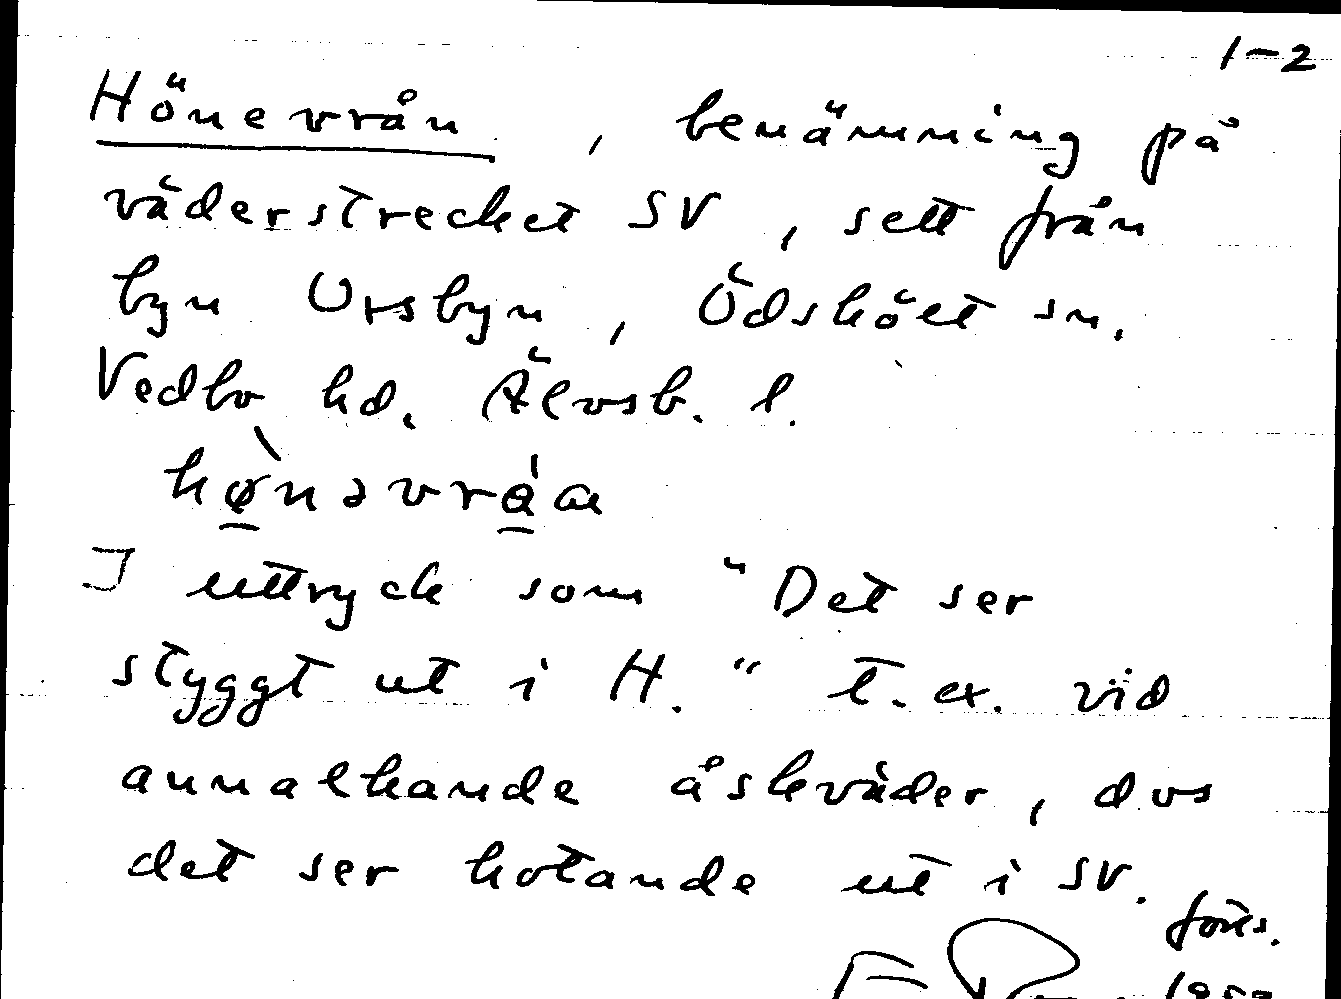 1-2
Hönevrån, benämning på
väderstrecket SV, sett från
byn Ursbyn, Ödskölt sn.
Vedbo hd. Älvsb. l.
hø̱̀nəvra̱̍æ
I uttryck som "Det ser
styggt ut i H." t. ex. vid
annalkande åskväder, dvs
det ser hotande ut i SV.
forts.